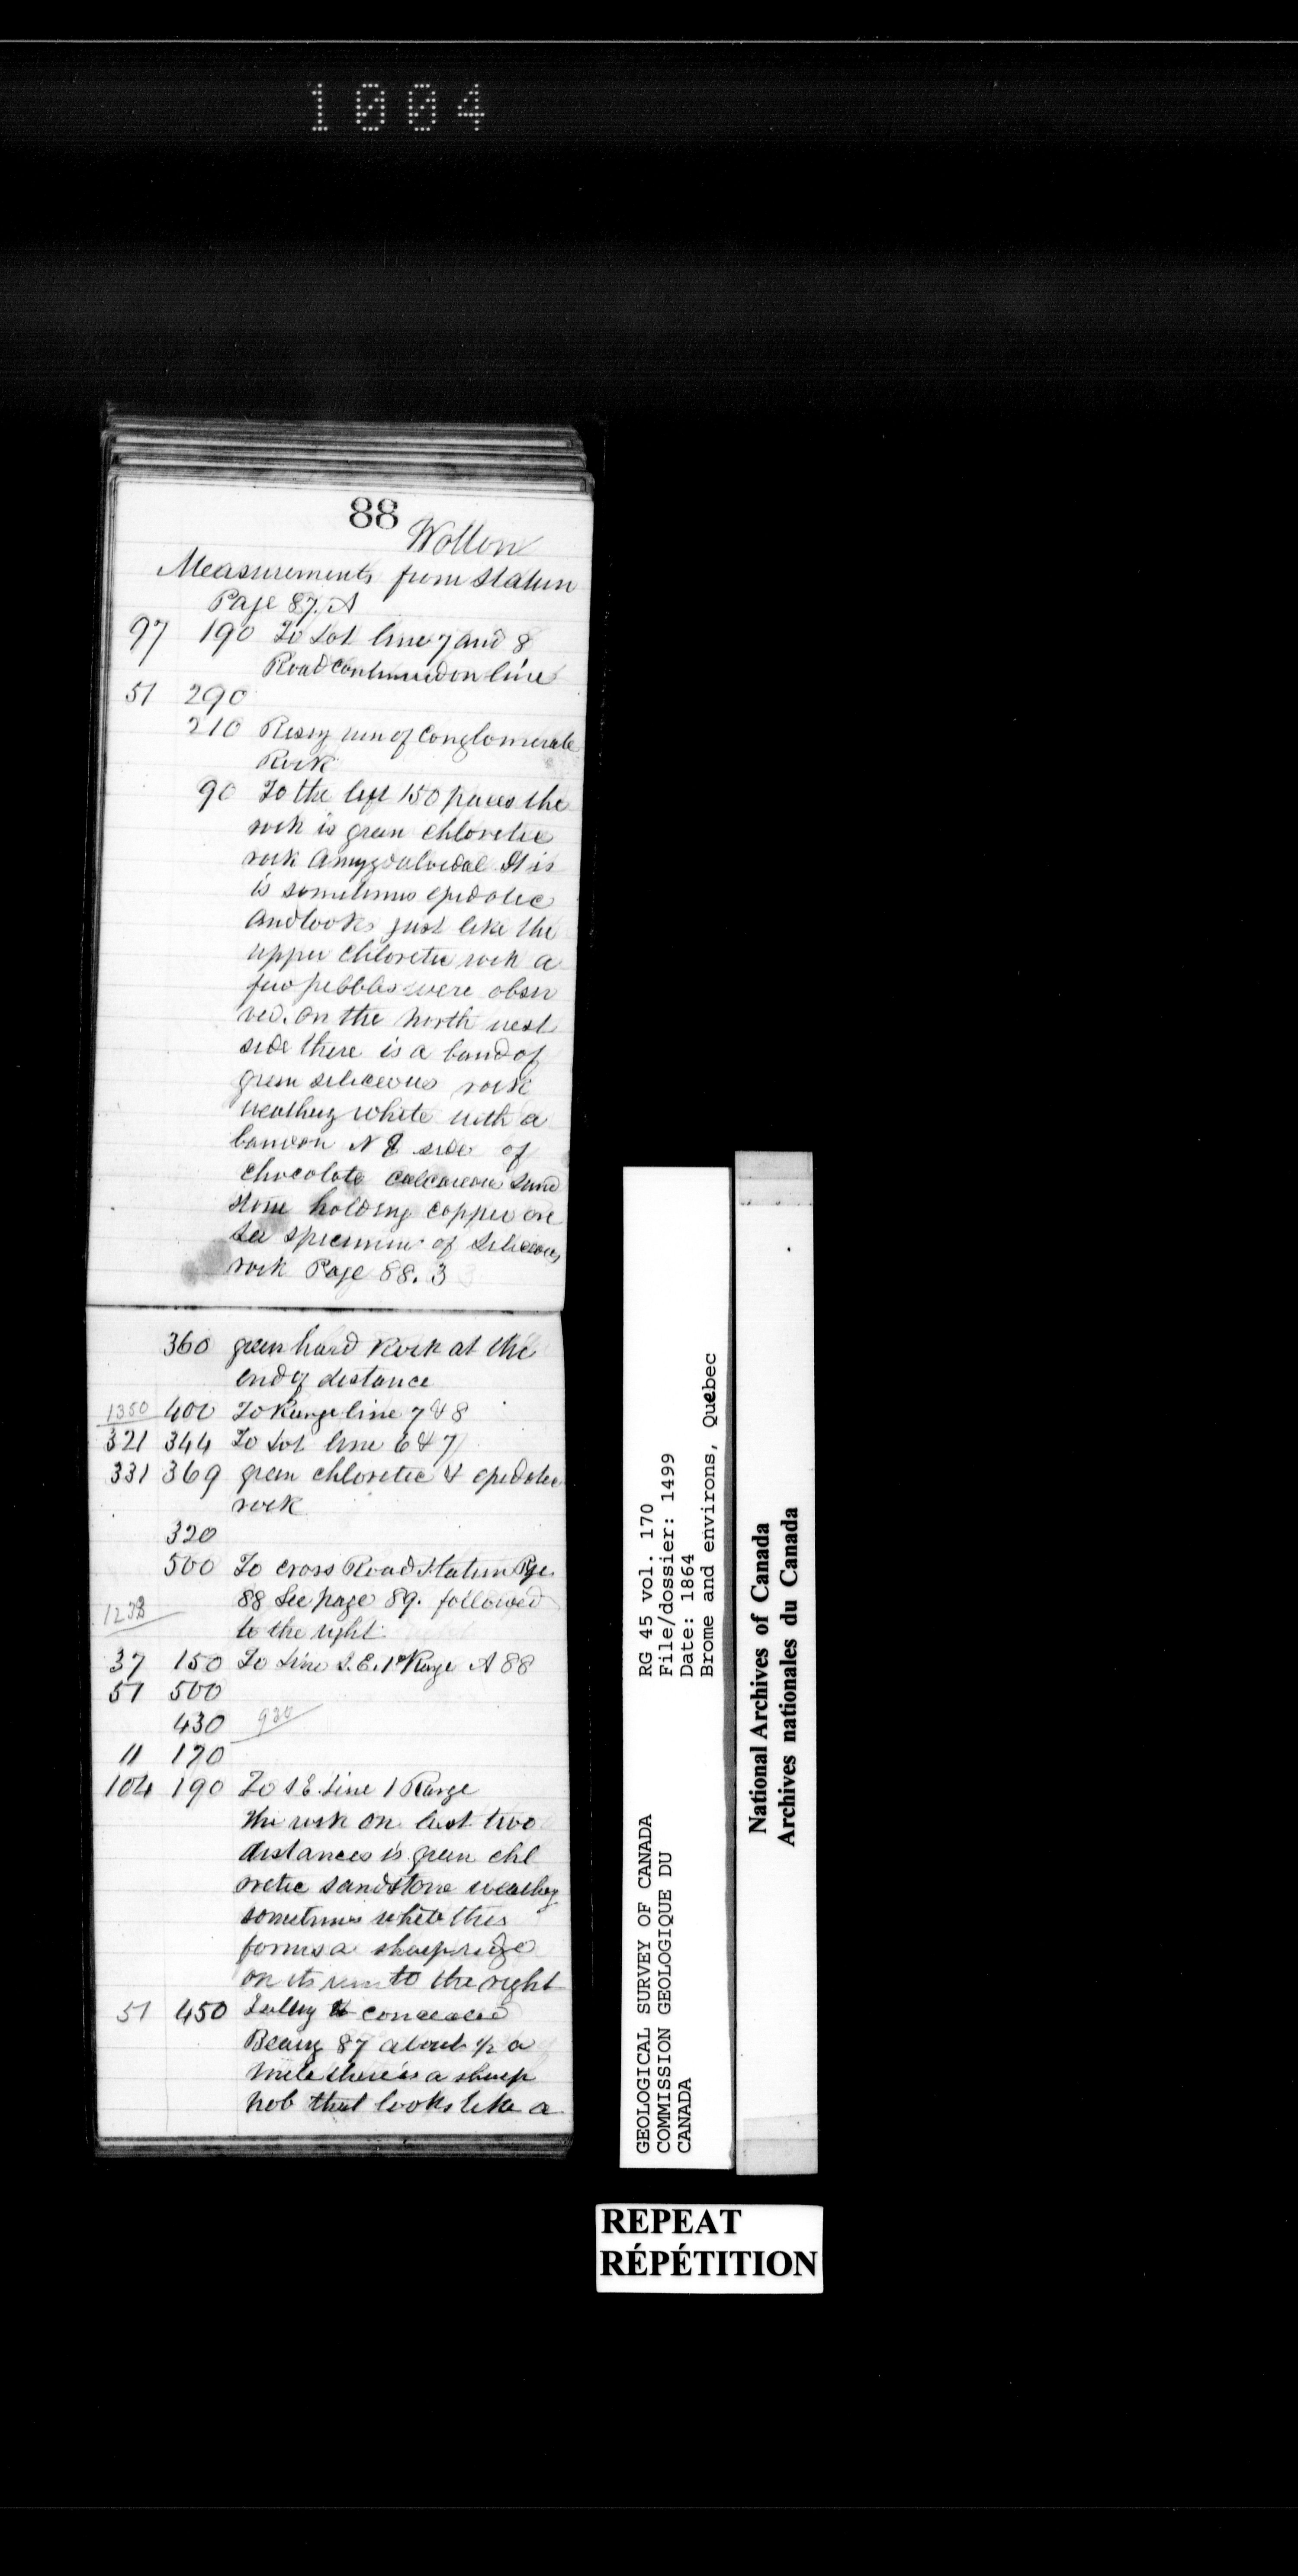 1004
88
Wotton
Measurements from Station
Page 87. A
97 190 To Lot line 7 and 8
Road continued on line
51 290
210 run of Conglomerate
Rock
90 To the left 150 paces the
rock is green chloretic
rock Amygdaloidal It is
is sometimes epidotic
and looks just like the
upper chloretic rock a
few pebbles were obser
ved. on the north west
side there is a band of
green siliceous rock
weathing white with a
band on N E side of
chocolate calcareous sand
stone holding copper ore
See specimen of Siliceous
rock Page 88. 3
360 green hard Rock at the
end of distance
1350 400 To Range line 7 & 8
321 344 To Lot line 6 & 7
331 369 green chloretic & epidotic
rock
320
500 To cross Road Station Pge
88 See page 89. followed
1233
to the right
37 150 To Line S.E. 1st Range A 88
51 500
430 930
11 170
104 190 To S E Line 1 Range
The rock on last two
distances is green chl
oretic sandstone weathing
sometimes white this
forms a sharp ridge
on its run to the right
51 450 concealed
Bearing 87 about 1/2 a
mile there is a sharp
nob that looks like a
RG 45 vol. 170
File/dossier: 1499
Date: 1864
Brome and environs, Quebec
GEOLOGICAL SURVEY OF CANADA
COMMISSION GEOLOGIQUE DU
CANADA
National Archives of Canada
Archives nationales du Canada
REPEAT
RÉPÉTITION